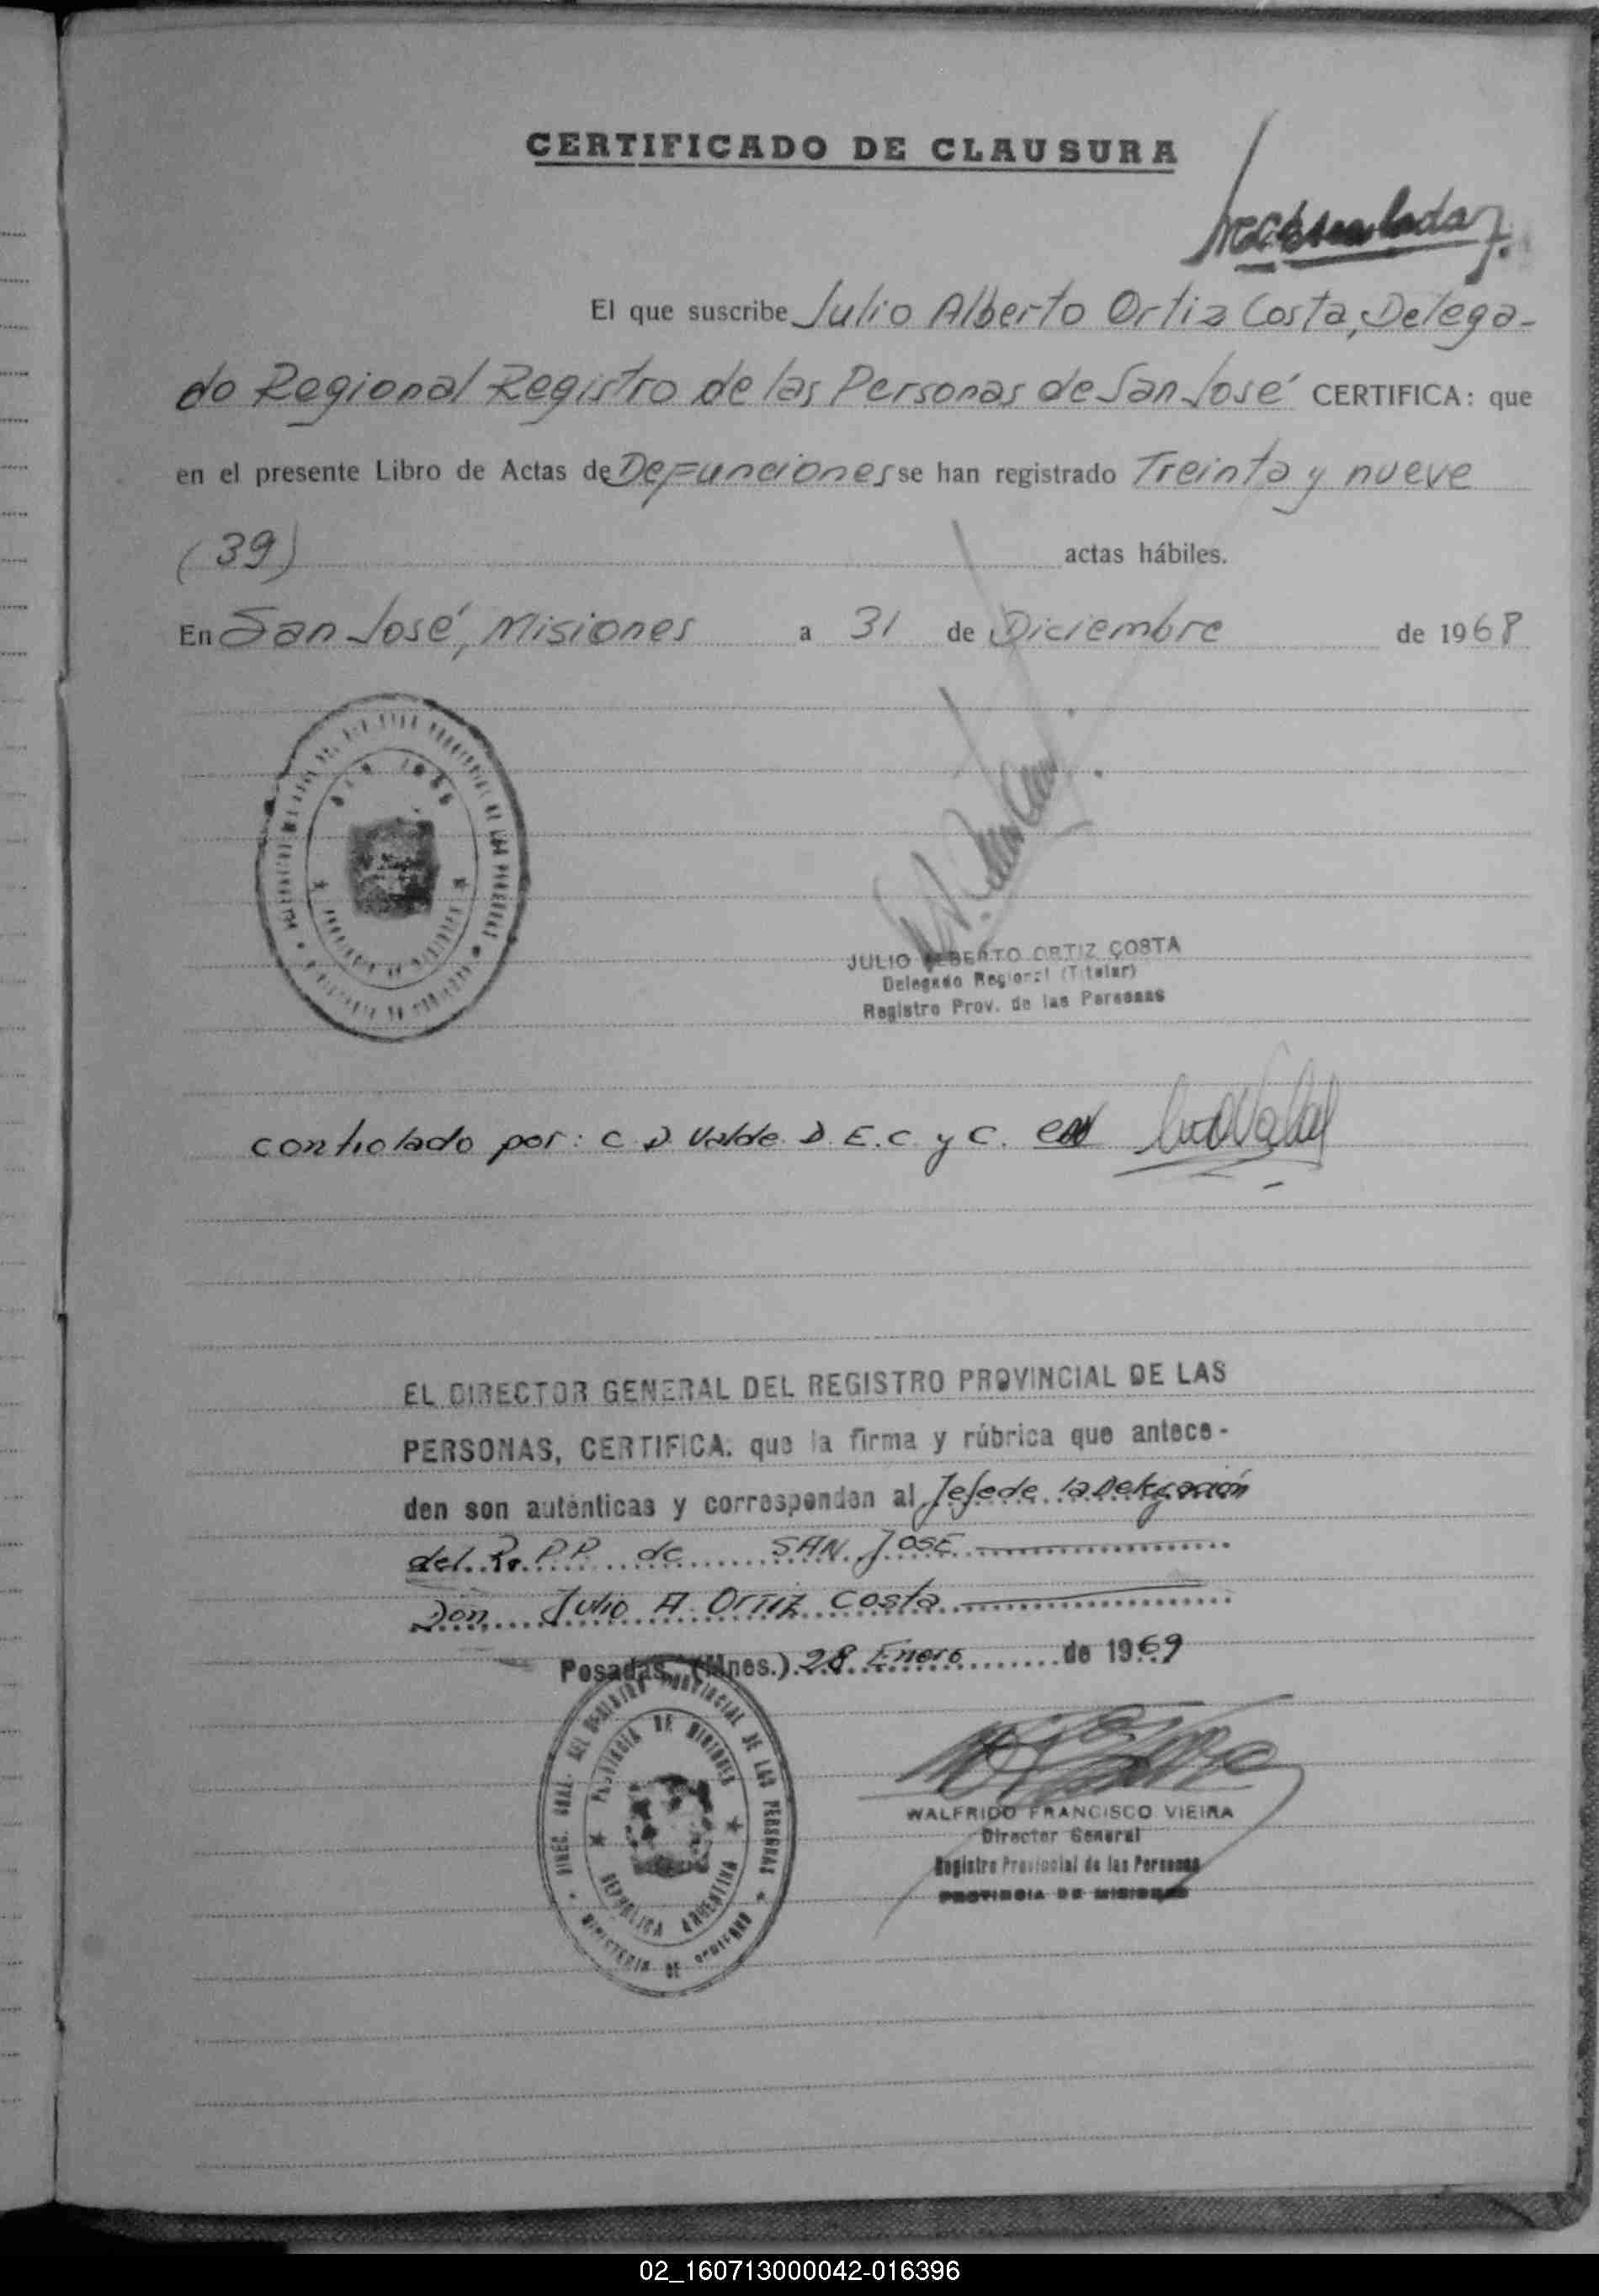 CERTIFICADO DE CLAUSURA
El que suscribe Julio Alberto Ortiz Costa, Delega-
do Regional Registro de las Personas de San José CERTIFICA: que
en el presente Libro de Actas de Defunciones se han registrado Treinta y nueve
(39) actas hábiles.
En San José, Misiones a 31 de Diciembre de 1968
JULIO ALBERTO ORTIZ COSTA
Delegado Regional (Titular)
Registro Prov. de las Personas
controlado por: C D. Valde. D. E. C. y C.
EL DIRECTOR GENERAL DEL REGISTRO PROVINCIAL DE LAS
PERSONAS, CERTIFICA: que la firma y rúbrica que antece-
den son auténticas y corresponden al Jefe de la Delegación
del R. P. P. de SAN JOSE
Don Julio A. Ortiz Costa
Posadas, (Mnes.) 28 Enero de 1969
DIREC. GRAL. DEL REGISTRO PROVINCIAL DE LAS PERSONAS
PROVINCIA DE MISIONES
REPUBLICA ARGENTINA
MINISTERIO DE GOBIERNO
WALFRIDO FRANCISCO VIEIRA
Director General
Registro Provincial de las Personas
PROVINCIA DE MISIONES
02_160713000042-016396